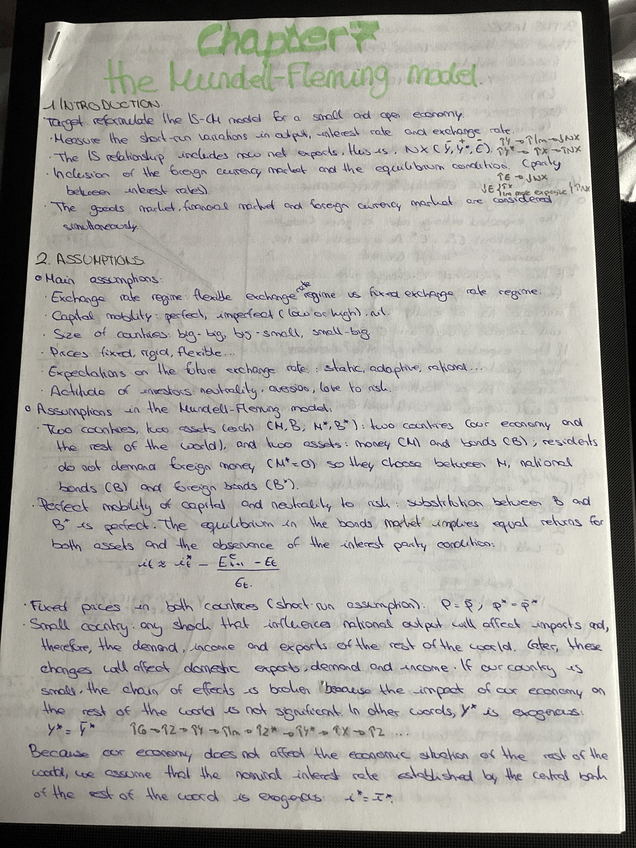 Chapter 7
the Mundell-Fleming model.
1. INTRODUCTION
Target: reformulate the IS-LM model for a small and open economy.
· Measure the short-run variations in output, interest rate and exchange rate.
· The IS relationship includes now net exports, this is, NX (Y, Y*, E). ↑Y → ↑Im → ↓NX
↑Y* → ↑X → ↑NX
· Inclusion of the foreign currency market and the equilibrium condition (parity
between interest rates). ↑E → ↓NX
↓E ↑X ↑Im more expensive ↑NX
· The goods market, financial market and foreign currency market are considered
simultaneously.
2. ASSUMPTIONS
o Main assumptions:
· Exchange rate regime: flexible exchange rate regime vs fixed exchange rate regime.
· Capital mobility: perfect, imperfect (low or high), nil.
· Size of countries: big-big, big-small, small-big
· Prices: fixed, rigid, flexible...
· Expectations on the future exchange rate: static, adaptive, rational...
· Actitude of investors: neutrality, aversion, love to risk.
o Assumptions in the Mundell-Fleming model.
· Two countries, two assets (each) (M, B, M*, B*): two countries (our economy and
the rest of the world), and two assets: money (M) and bonds (B), residents
do not demand foreign money (M*=0) so they choose between M, national
bonds (B) and foreign bonds (B*).
· Perfect mobility of capital and neutrality to risk: substitution between B and
B* is perfect. The equilibrium in the bonds market implies equal returns for
both assets and the observance of the interest parity condition:
it ≈ it* - (E^e t+1 - Et) / Et
· Fixed prices in both countries (short-run assumption). P = P̄, P* = P̄*
· Small country: any shock that influences national output will affect imports and,
therefore, the demand, income and exports of the rest of the world. Later, these
changes will affect domestic exports, demand and income. If our country is
small, the chain of effects is broken because the impact of our economy on
the rest of the world is not significant. In other words, Y* is exogenous:
Y* = Ȳ* ↑G → ↑Z → ↑Y → ↑Im → ↑Z* → ↑Y* → ↑X → ↑Z ...
Because our economy does not affect the economic situation of the rest of the
world, we assume that the nominal interest rate established by the central bank
of the rest of the word is exogenous: i* = ī*.